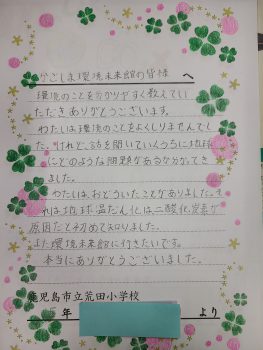 かごしま環境未来館の皆様 へ
環境のことを分かりやすく教えてい
ただきありがとうございます。
わたしは環境のことをよくしりませんでし
た。けれど、話を聞いていくうちに地球
にどのような問題があるか分かってき
ました。
わたしは、おどろいたことがありました。そ
れは地球温だん化は、二酸化炭素が
原因だと初めて知りました。
また環境未来館に行きたいです。
本当にありがとうございました。
鹿児島市立荒田小学校
年 より